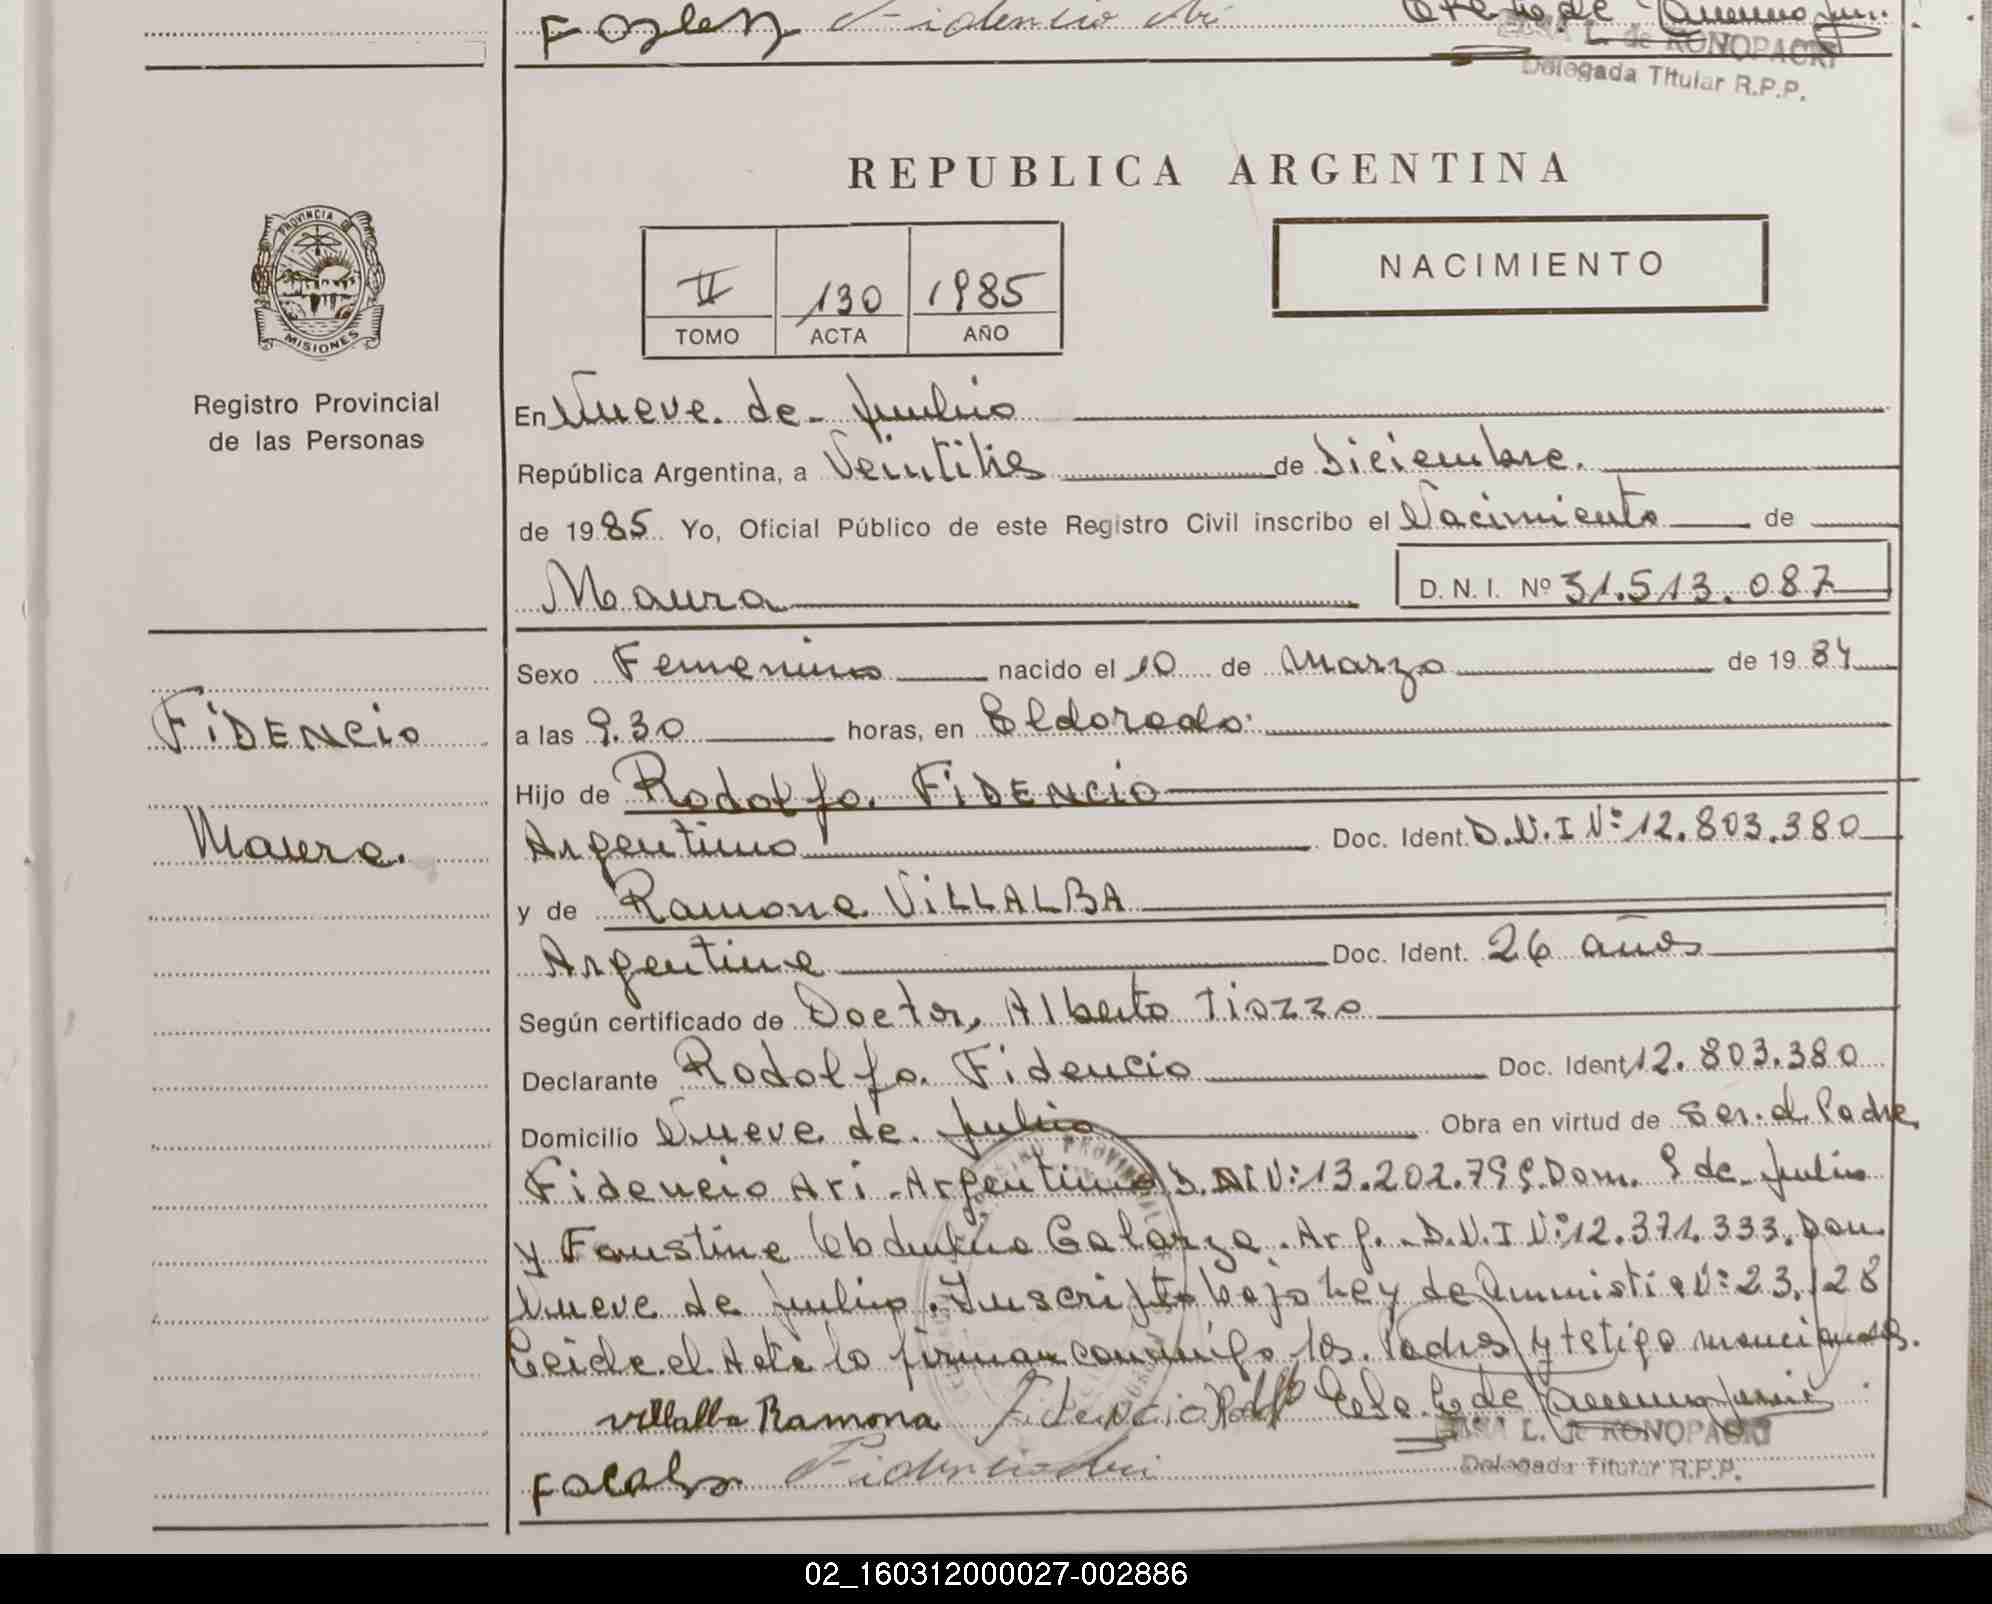 Fidencio Ari
L. de KONOPACKI
Delegada Titular R.P.P.
REPUBLICA ARGENTINA
PROVINCIA DE
MISIONES
Registro Provincial
de las Personas
II 130 1985
TOMO ACTA AÑO
NACIMIENTO
En Nueve de Julio
República Argentina, a Veintitres de Diciembre.
de 1985. Yo, Oficial Público de este Registro Civil inscribo el Nacimiento de
Maura D. N. I. Nº 31.513.087
Sexo Femenino nacido el 10 de Marzo de 1984
FiDENCio
a las 9.30 horas, en Eldorado.
Hijo de Rodolfo FiDENCiO
Maura.
Argentino Doc. Ident. D.N.I Nº 12.803.380
y de Ramona ViLLALBA
Argentina Doc. Ident. 26 años
Según certificado de Doctor, Alberto Tiozzo
Declarante Rodolfo Fidencio Doc. Ident. 12.803.380
Domicilio Nueve de Julio Obra en virtud de Ser el Padre,
Fidencio Ari Argentino D.N.I Nº 13.202.799. Dom. 9 de Julio
y Faustina Galarza. Arg. D.N.I Nº 12.371.333. Dom.
Nueve de Julio. Inscripto bajo Ley de Amnistia Nº 23.128
Leida el Acta lo firman conmigo los Padres y testigo mencionados.
Villalba Ramona Fidencio Rodolfo
L. de KONOPACKI
Fidencio Ari Delegada Titular R.P.P.
02_160312000027-002886